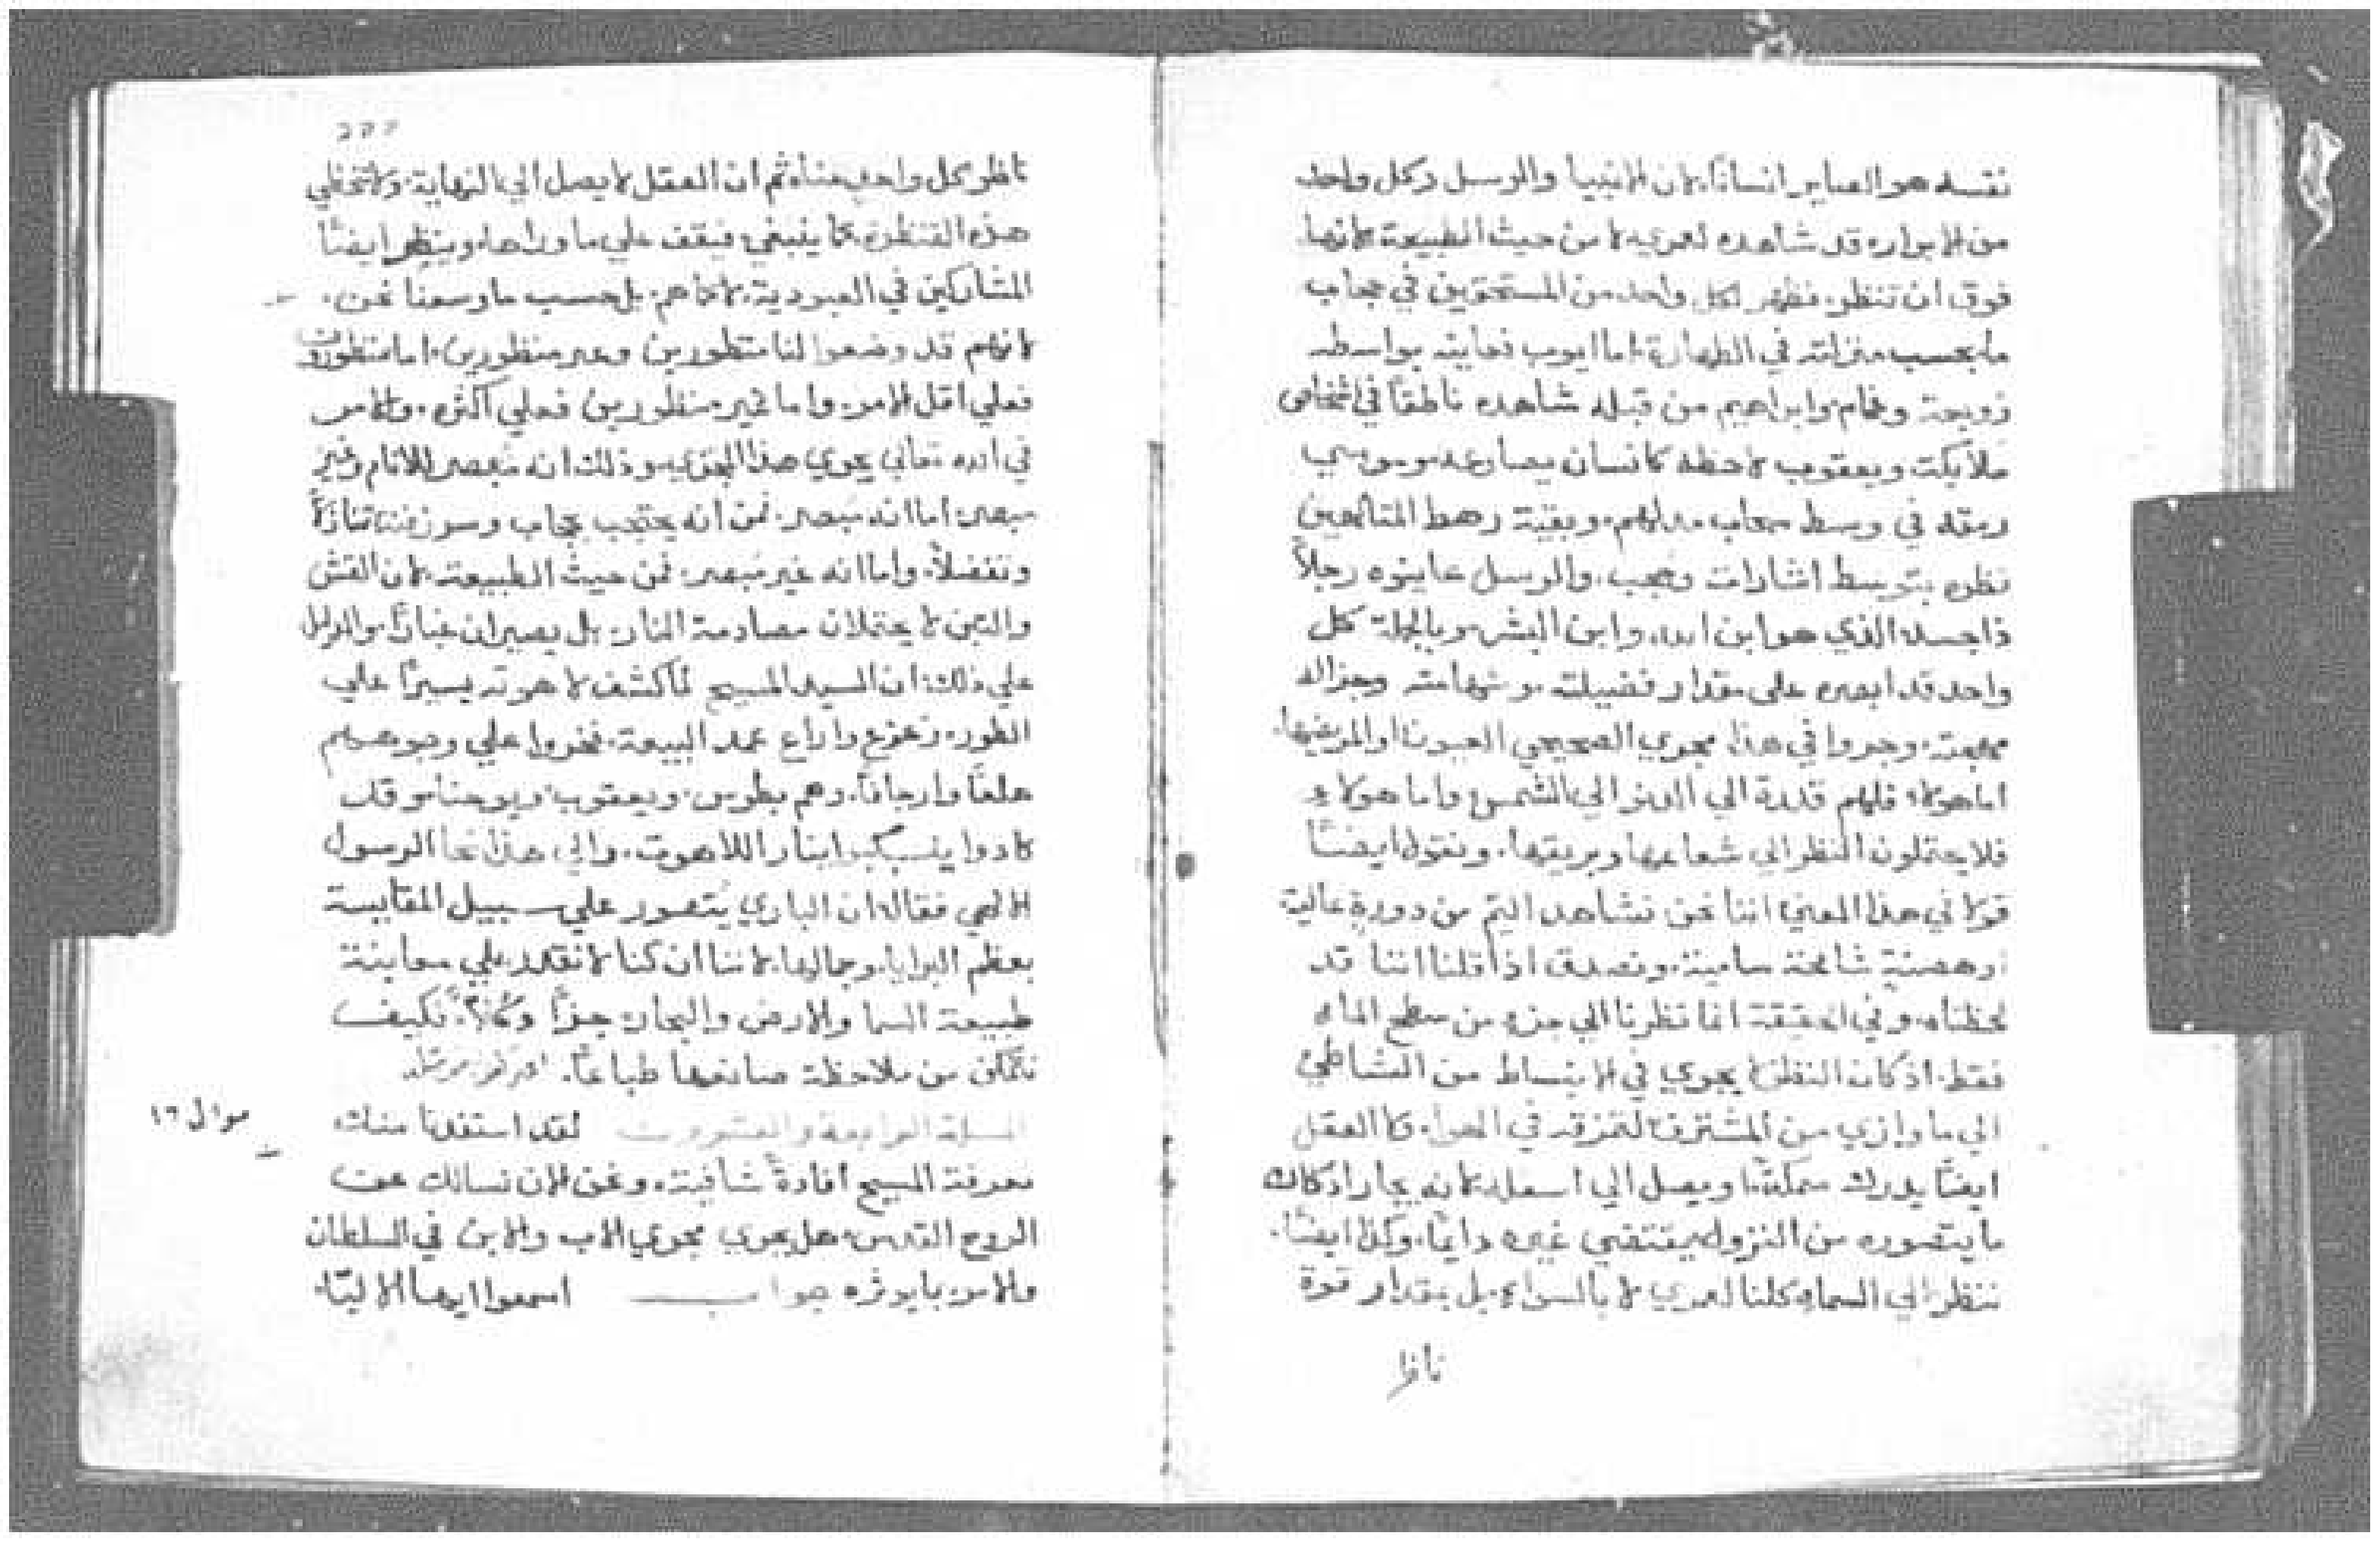 نفسه هو الصاير انسانًا. لان الانبيا والرسل وكل واحد
من الابراره قد شاهده لعمري لا من حيث الطبيعة لانها
فوق ان تنظر. فظهر لكل واحد من المستحقين في حجاب
ما بحسب منزلته في الطهارة. اما ايوب فعاينه بواسطه
زوبعة وغمام. وابراهيم من قبله شاهده ناطقًا في اشخاص
ملايكة ويعقوب لاحظه كانسان يصارعه. وموسي
رمقه في وسط سحاب مدلهم. وبقية رهط المتألهين
نظره بتوسط اشارات وحجب. والرسل عاينوه رجلاً
ذا جسد الذي هو ابن الله. وابن البشر. وبالجملة كل
واحد قد ابصره علي مقدار فضيلته وشهامته وجزاله
مهجته. وجروا في هذا مجري الصحيحي العيون او المريضيها.
اما هولاء فلهم قدرة الي الدنو الي الشمس واما هولاء
فلا يحتملون النظر الي شعاعها وبريقها. ونقول ايضًا
قولا في هذا المعني اننا نحن نشاهد اليم من ذورة عالية
او هضبة شامخة سامية. ونصدق اذا قلنا اننا قد
لحظناه. وفي الحقيقة انما نظرنا الي جزء من سطح الماء
فقط. اذ كان النظر لا يجري في الانبساط من الشاطي
الي ما وازي من المشترف لتمزقه في الهوا. ولا العقل
ايضًا يدرك سمكها ويصل الي اسفله لانه يحار اذ كان
ما يتصوره من النزول يقتضي غيره دايمًا. وكذا ايضًا.
ننظر الي السماء كلنا لعمري لا بالسواء بل بمقدار قوة
ناظر
٢٢٢
ناظر كل واحد منا. ثم ان العقل لا يصل الي النهاية. ولا تتخطي
هذه القنطرة كما ينبغي فيقف علي ما وراها. وينظر ايضًا
المشاركين في العبودية. لا كما هم بل حسب ما وسعنا نحن.
لانهم قد وضعوا لنا منظورين وغير منظورين. اما منظورون
فعلي اقل الامر. واما غير منظورين فعلي اكثره. والامر
في الله تعالي يجري هذا المجري. وذلك انه مُبصر للانام وغير
مبصر: اما انه مُبصر. فمن انه يحتجب بحجاب وسور تنازلاً
وتفضلاً. واما انه غير مُبصر. فمن حيث الطبيعة. لان القش
والتبن لا يحتملان مصادمة النار. بل يصيران غبارًا. والدليل
علي ذلك: ان السيد المسيح لما كشف لاهوته يسيرًا علي
الطور. زعزع واراع عمد البيعة. فخروا علي وجوههم
هلعًا وارجافًا. وهم بطرس. ويعقوب. ويوحنا. وقد
كادوا ينسبكوا بنار اللاهوت. والي هذا نحا الرسول
الالهي فقال: ان الباري يُتصور علي سبيل المقايسة
بعظم البرايا. وجمالها. لاننا ان كنا لا نقدر علي معاينة
طبيعة السما والارض والبحار: جزًا وكلاً. فكيف
نتمكن من ملاحظة صانعها طباعًا.
المسلة الرابعة والعشرون لقد استفدنا منك
معرفة المسيح افادةً شافية. ونحن الان نسالك عن
الروح القدس. هل يجري مجري الاب والابن في السلطان
والامر. بما يوثره جواب اسمعوا ايها الالبّا.
سوال ١٦